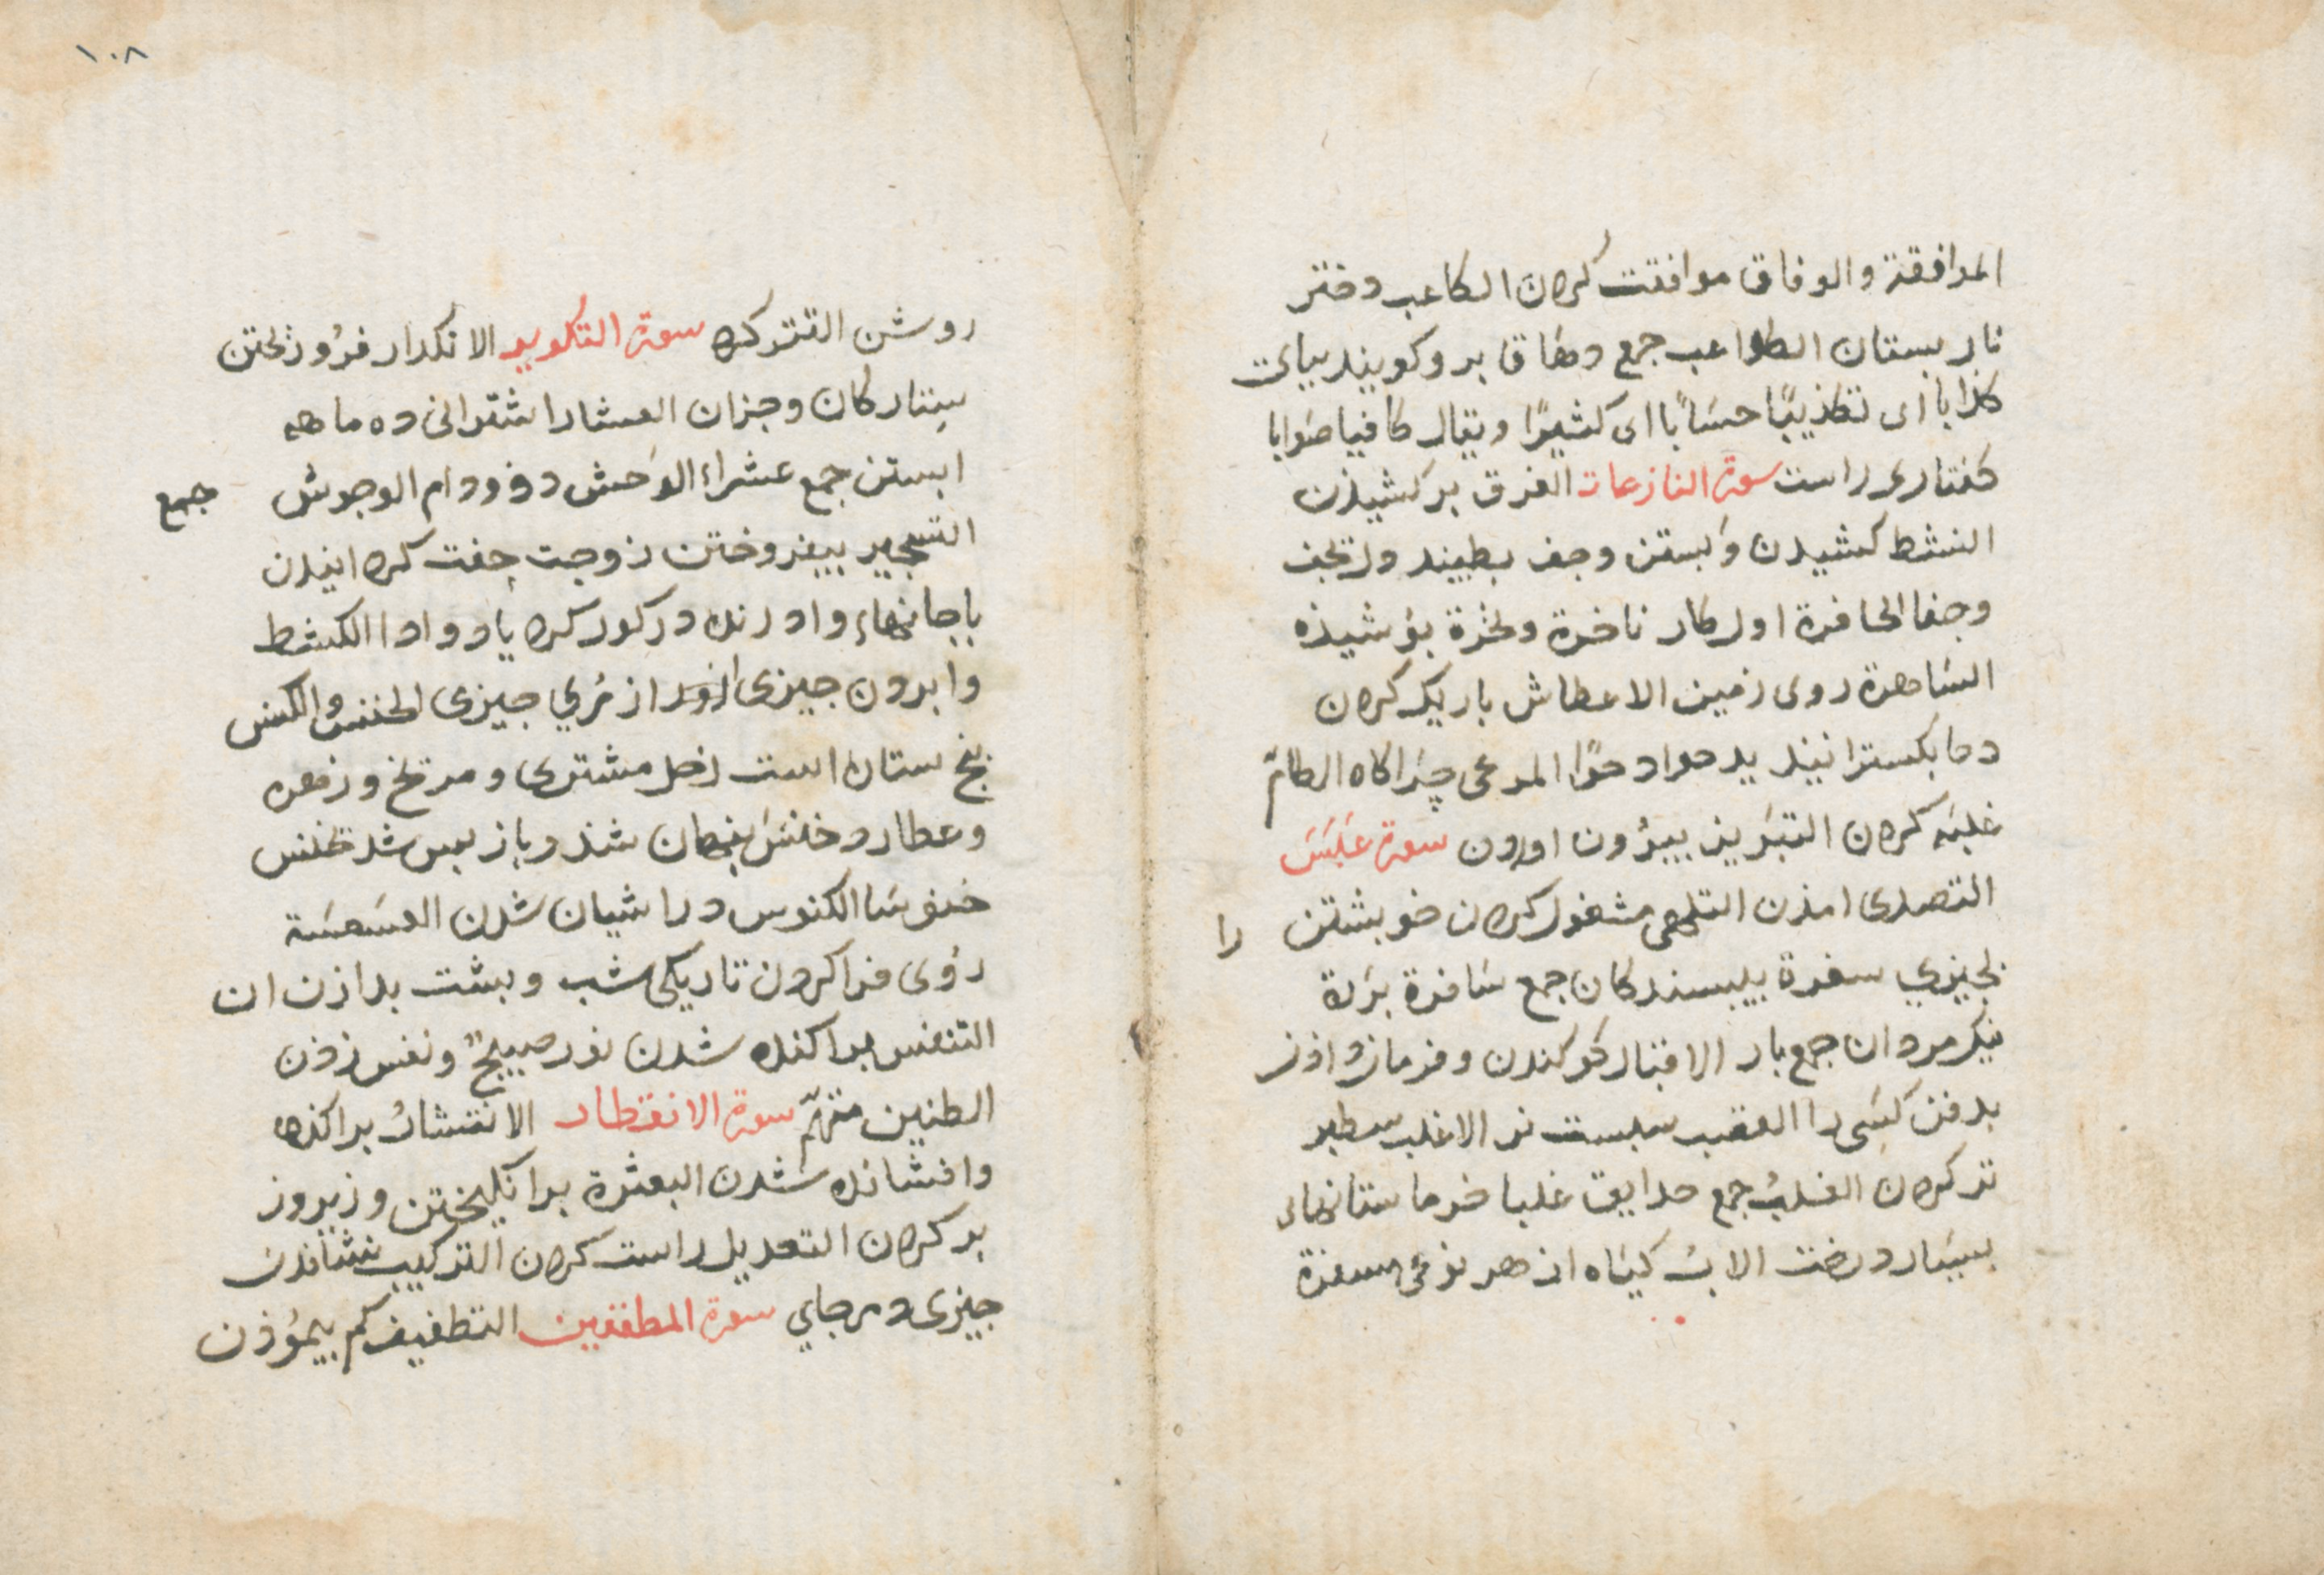 الموافقة والوفاق موافقت كردن الكاعب دختر
نار بستان الكواعب جمع دهاق بر وكويند بياىت
كذابا اى تكذيبًا حسَابًا اى كثيرًا ويقال كافيا صَوابا
كفتارى راست سورة النازعات الغرق بر كشيدن
النشط كشيدن وَابستن وجف بطپيد وارتجف
وجفا الحافرة اول كار ناخرة ونخرة بوشيذه
السَاهرة روى زمين الاغطاش باريك كردن
دحا بكسترانيذ يدحوا دحوًا المرعى چراكاه الطامّ
غلبَه كردن التبَريز بيرُون اوردن سورة عَبَسَ
التصدى امذن التلهى مشغول كردن خويشتن را
بچيزي سفرة نبيسندكان جمع سَافرة برَرة
نيكمردان جمع بار الاقبار كور كندن وفرمان دادن
بدفن كسَى را القضب سبست تر الاغلب سطبر
تر كردن الغلبُ جمع حدايق غلبا خرماستانهاى
بسيَار درخت الابُ كيَاه از هر نوعى مسفرة
١٠٨
روشن القتر كرد سورة التكوير الانكدار فرُو ريختن
سِتاركان وجزان العشار اشترانى ده ماهه
ابستن جمع عشراء الوَحش دد ودام الوحوش جمع
التسجير بيفروختن زوجت جفت كرد انيدن
باجانهاء واد زنده در كور كرد ياد وادا الكشط
وابردن چيزى از چيزى الخنس والكنس
پنج ستاره است زحل مشترى ومريخ وزهره
وعطارد خنسَ پنهان شذ وباز پس شد يخنس
خنوسَا الكنوس در اشيان شدن العسَعسَة
رُوى فرا كردن تاريكى شب وبشت بدادن ان
التنفس پراكنده شدن نور صبح ونفس زذن
الظنين متهمّ سورة الانفطار الانتشارُ براكنده
وافشانده شدن البعثرة برانكيختن وزير وزبر كردن التعديل راست كردن التركيب نشاندن
چيزى در جاي سورة المطففين التطفيف كم پيمُوذن